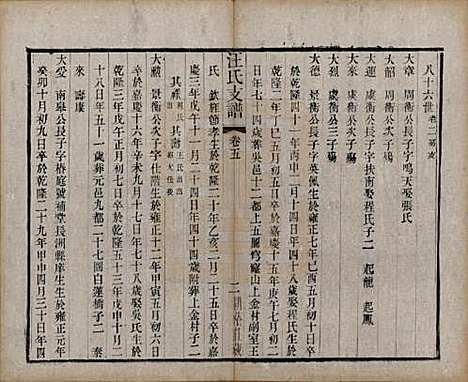 八十六世
大章 周衡公次子字鳴天娶張氏
大韶 周衡公三子
大連 景衡公長子字扶南娶程氏子二 起龍 起鳳
大烈 景衡公三子
大德 景衡公長子字英佩生於雍正七年己酉五月初十日卒於乾隆
四十一年丙申二月十四日年四十八歲娶程氏生於
乾隆二年丁巳五月初五日卒於嘉慶十五年庚午七月初四
日年七十四歲葬吳邑十都上五圖穹窿山上金村副室王
汪氏支譜
卷五
氏 欽旌節孝生於乾隆二十年乙亥二月二十五日卒於嘉
慶三年戊午十一月二十四日年四十四歲祔葬上金村子二
其祿 其
大勲 景衡公次子字仕旌生於雍正十二年甲寅五月初六日
卒於嘉慶十六年辛未九月十七日年七十八歲娶吳氏生於
乾隆三年戊午七月初十日卒於乾隆五十三年戊申十月二
十八日年五十一歲葬元邑九都二十啚白蓮橋子二 泰
來 壽康
大受 南皋公長子字椿庭號補堂長洲縣庠生生於乾隆
癸卯十月初九日卒於乾隆二十九年甲申四月三十日年